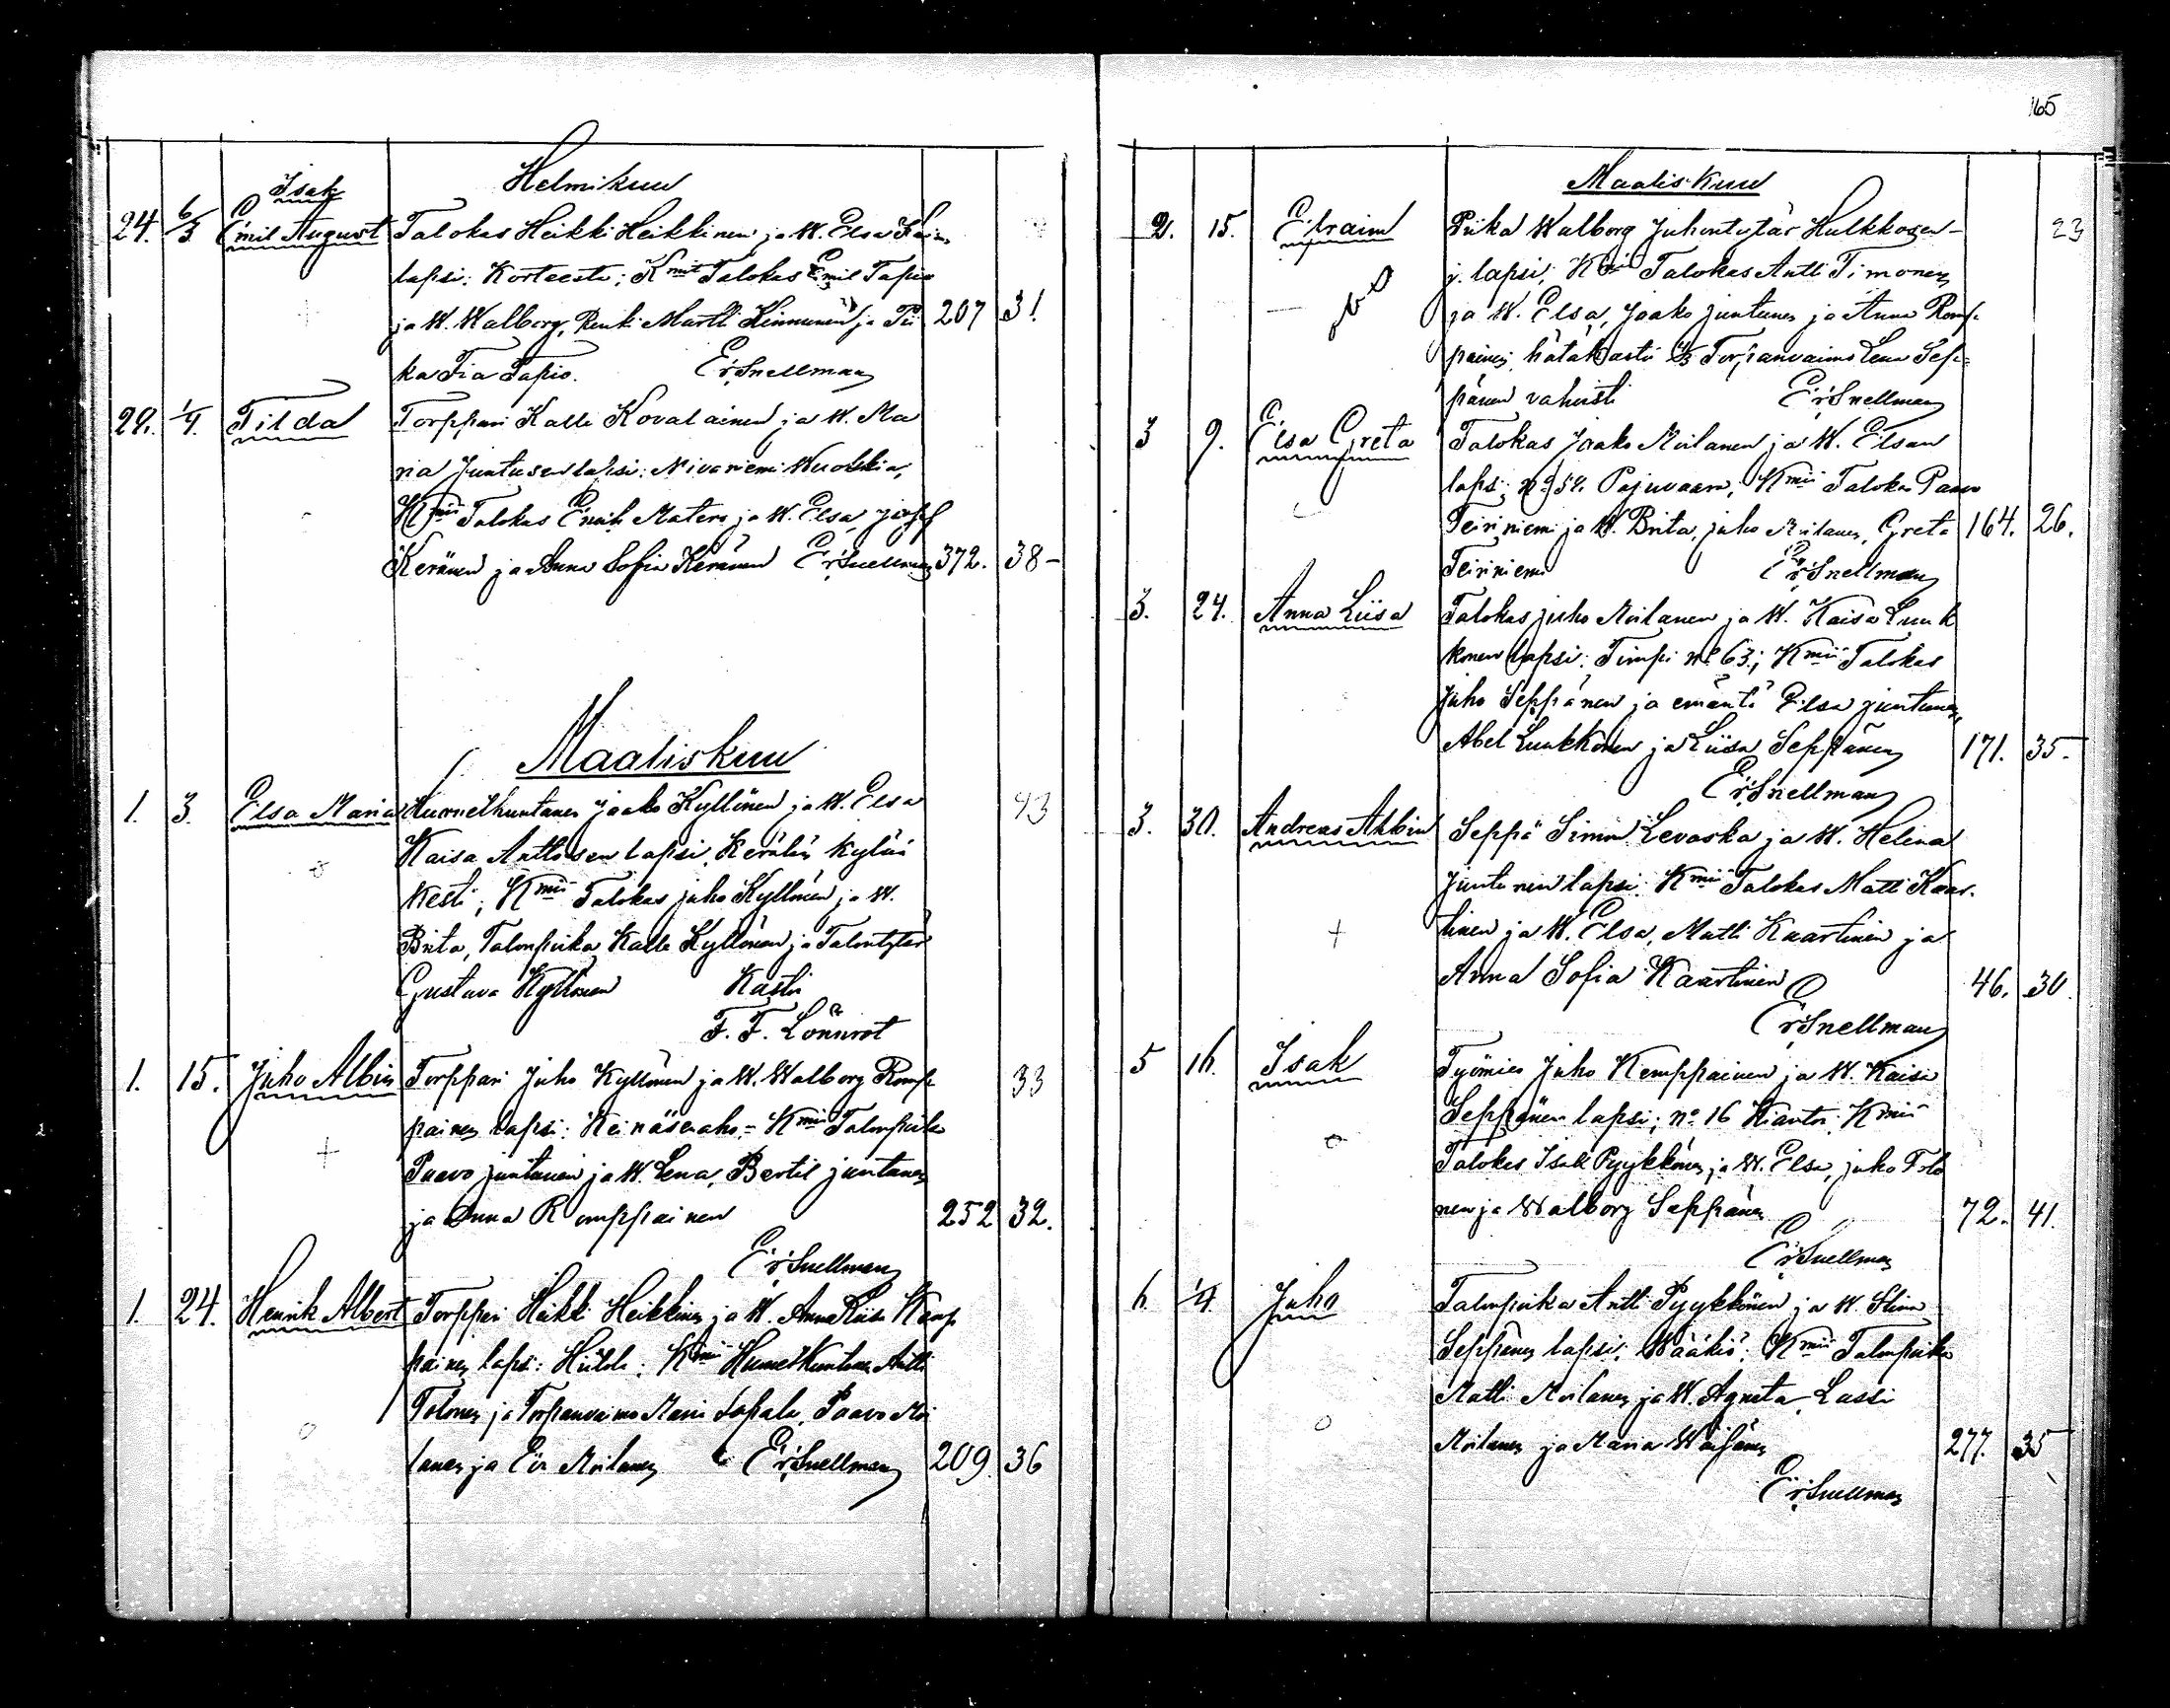 165
Helmikuu
Isak
24. 6/3 Emil August Talokas Heikki Heikkinen ja W. Elsa
lapsi: Korteesta; Kmit Talokas Emil Tapio
ja W. Walborg, Renki Martti Kinnunen ja Pii 207 31.
ka Fia Tapio. Er. Snellman
1/4 Tilda Torppari Kalle Kovalainen ja W. Ma
ria Juntusen lapsi: Nivaniemi Wuokki;
Kmit Talokas Matero ja W. Elsa, Josef
Keränen ja Anna Sofia Keränen Er. Snellman 372. 38-
Maaliskuu
1. 3. Elsa Maria Huonekuntanen Jaako Kyllönen ja W. Elsa 43
Kaisa Anttosen lapsi, Kerälän kylän
Kesti; Kmit Talokas Juho Kyllönen ja W.
Brita, Talonpoika Kalle Kyllönen ja Talontytär
Gustava Kyllönen Kasti
F. F. Lönnrot
1. 15. Juho Albin Torppari Juho Kyllönen ja W. Walborg Romp 33
painen lapsi: Keinäsenaho = Kmit Talonpoika
Paavo Juntunen ja W. Lena, Bertil Juntunen
+
ja Anna Romppainen 252 32.
Er. Snellman
1. 24. Henrik Albert Torppari Heikki Heikkinen ja W. Anna Liisa Kemp
painen lapsi: Kmit Antti
Tolonen ja Torpanvaimo Maria Paavo Moi
lanen ja Eva Moilanen Er. Snellman 209. 36
Maaliskuu
2. 15. Efraim Piika Walborg Juhontytär Hulkkosen- 23
j. lapsi; Kmit Talokas Antti Timonen
ja W. Elsa, Jaako Juntunen ja Anna Romp-
painen, hätäkastii Torpanvaimo Lena Sep=
pänen vahvisti Er. Snellman
3 9. Elsa Greta Talokas Jaako Moilanen ja W. Elsan
lapsi; Pajuvaara; Kmit Talokas Paavo
Teiriniemi ja W. Brita, Juho Moilanen, Greta 164. 26.
Teiriniemi Er. Snellman
3. 24. Anna Liisa Talokas Juho Moilanen ja W. Kaisa Luuk
konen lapsi: Timpi no 63.; Kmit Talokas
Juho Seppänen ja emäntä Elsa Juntunen,
Abel Luukkonen ja Liisa Seppänen 171. 35.
Er. Snellman
3. 30. Andreas Albin Seppä Simon Levoska ja W. Helena
Juntunen lapsi: Kmit Talokas Matti Kaar-
+
tinen ja W. Elsa, Matti Kaartinen ja
Anna Sofia Kaartinen 46. 30.
Er. Snellman
5 16. Isak Työmies Juho Kemppainen ja W. Kaisa
Seppänen lapsi; no 16 Kianta; Kmit
Talokas Isak Pyykkönen ja W. Elsa, Juho Tolo
nen ja Walborg Seppänen 72. 41.
Er. Snellman
6. 1/4 Juho Talonpoika Antti Pyykkönen ja W. Stina
Seppänen lapsi: Wääkiö: Kmit Talonpoika
Matti Moilanen ja W. Agneta, Lassi
Moilanen ja Maria Wäisänen 277. 35
Er. Snellman